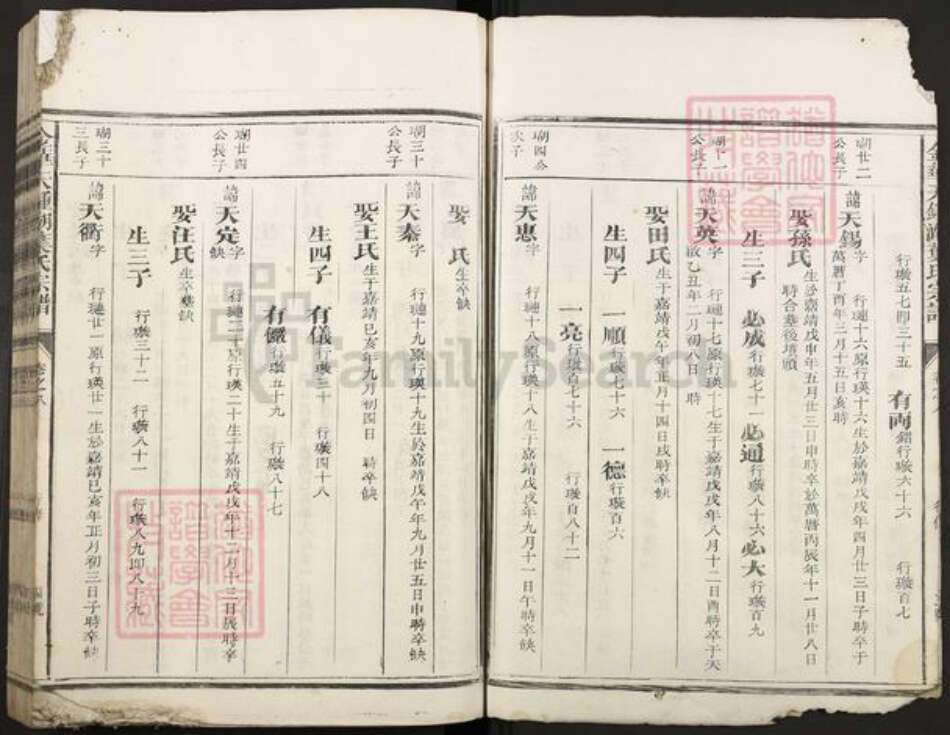 行璇五七即三十五
有兩
錯行璇六十六
行璇百七
瑚廿二
公長子
諱天錫字
行璉十六原行瑛十六生於嘉靖戊戌年四月廿三日子時卒于
萬曆丁酉年三月十五日亥時
娶孫氏
生於嘉靖戊申年五月廿三日申時卒於萬曆丙辰年十一月廿八日
時合葬後墳頭
生三子 必成行璇七十一 必通行璇八十六 必大行璇百九
瑚十一
公長子
諱天英字
行璉十七原行瑛十七生于嘉靖戊戌年八月十二日酉時卒于天
啟乙丑年二月初八日 時
娶田氏
生于嘉靖戊午年正月十四日戌時卒缺
生四子 一順行璇七十六 一德行璇百六
一亮行璇百七十六 行璇百八十二
瑚四公
次子
諱天惠字
行璉十八原行瑛十八生于嘉靖戊戌年九月十一日午時卒缺
娶 氏生卒缺
瑚三十
公長子
諱天秦字
行璉十九原行瑛十九生於嘉靖戊午年九月廿五日申時卒缺
娶王氏
生于嘉靖巳亥年九月初四日 時卒缺
生四子 有儀行璇三十 行璇四十八
有儼行璇五十九 行璇八十七
瑚廿四
公長子
諱天定字
缺
行璉二十原行瑛二十生于嘉靖戊戌年十二月十三日辰時卒
娶汪氏生卒葬缺
生三子 行璇三十二 行璇八十一 行璇八九即八十九
瑚三十
三長子
諱天衢字
行璉廿一原行瑛廿一生於嘉靖巳亥年正月初三日子時卒缺
FamilySearch